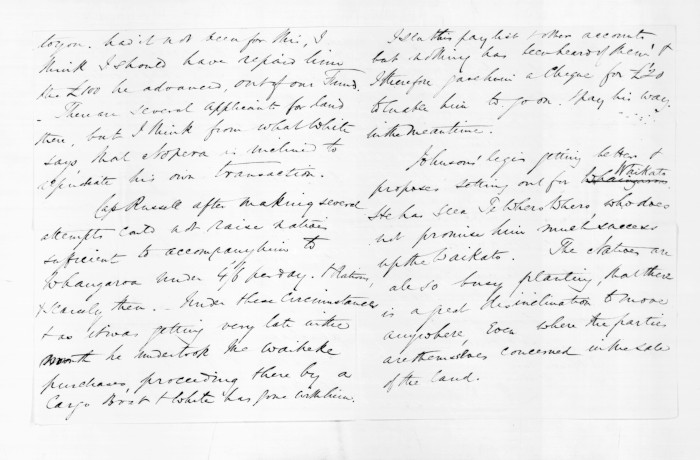 had it not been for this, I
think I should have repaid him
the £100 he advanced, out of our Fund.
- There are several applicants for land
there, but I think from what White
says that Nopera is inclined to
repudiate his own transaction.
Cap Russell after making several
attempts could not raise natives
sufficient to accompany him to
Whangaroa under 4/6 per day. & Rations,
& scarcely then. - Under these Circumstances
& as it was getting very late in the
month he undertook the Waiheke
purchases, proceeding there by a
Cargo Boat & White has gone with him.
I sent his paylist & other accounts
but nothing has been heard of them &
I therefore gave him a Cheque for £20
to make him to go on. & pay his way
in the meantime.
Johnson's leg is getting better &
proposes setting out for Whangaroa Waikato
He has seen Te Whero Whero, who does
not promise him much success
up the Waikato. The Natives are
all so busy planting, that there
is a great disinclination to move
anywhere, Even where the parties
are themselves concerned in the sale
of the land.